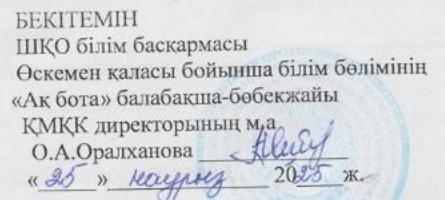 БЕКІТЕМІН
ШҚО білім басқармасы
Өскемен қаласы бойынша білім бөлімінің
«Ақ бота» балабақша-бөбекжайы
ҚМҚК директорының м.а
О.А.Оралханова
« 25 » наурыз 2025 ж.